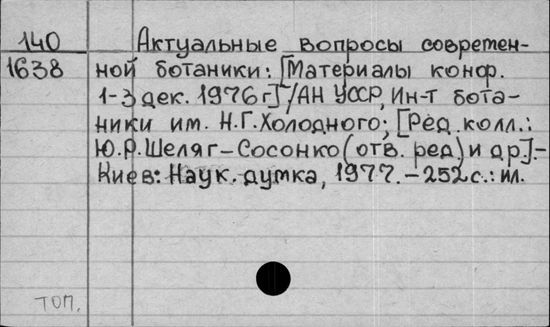 140 Актуальные вопросы современ-
1638 ной ботаники: [Материалы конф.
1-3 дек. 1976 г] /АН УССР, Ин-т бота-
ники им. Н.Г.Холодного; [Ред. колл.:
Ю.Р.Шеляг-Сосонко (отв. ред.) и др].-
Киев: Наук. думка, 1977. - 252 с.: ил.
топ.